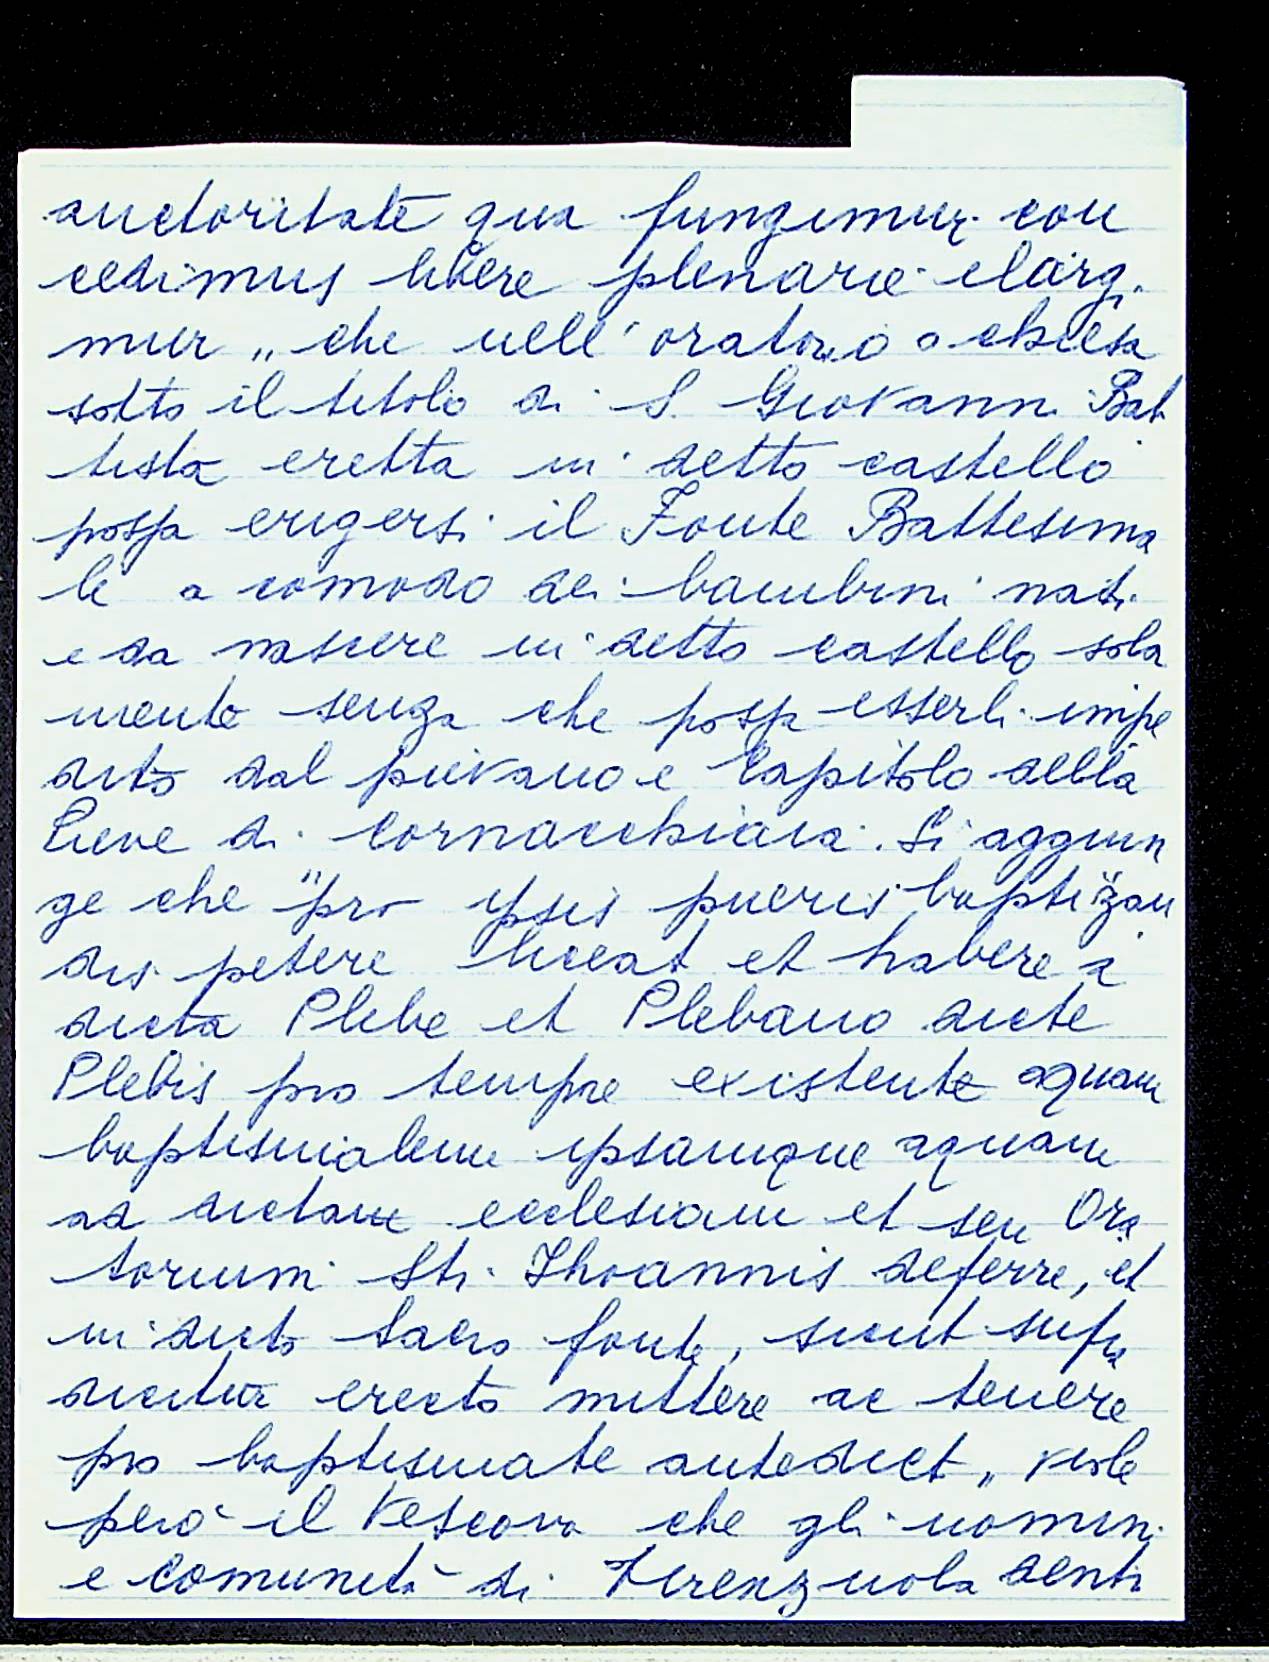 auctoritate qua fungimur con
cedimus libere plenarie elargi
mur „ che nell' oratorio o chiesa
sotto il titolo di S. Giovanni Bat
tista eretta in detto castello
possa erigersi il Fonte Battesima
le a comodo dei bambini nati
e da nascere in detto castello sola
mente senza che possa esserli impe
dito dal pievano e Capitolo della
Pieve di Cornacchiaia. Si aggiun
ge che "pro ipsis pueris baptizan
dis petere liceat et habere a
dicta Plebe et Plebano dicte
Plebis pro tempre existente aquam
baptismalem ipsamque aquam
ad dictam ecclesiam et seu Ora
torium Sti. Ihoannis deferre, et
in dicto sacro fonte, sicut supra
dicitur erecto mittere ac tenere
pro baptismate antedict „ vuole
però il Vescovo che gli uomini
e comunità di Firenzuola denti